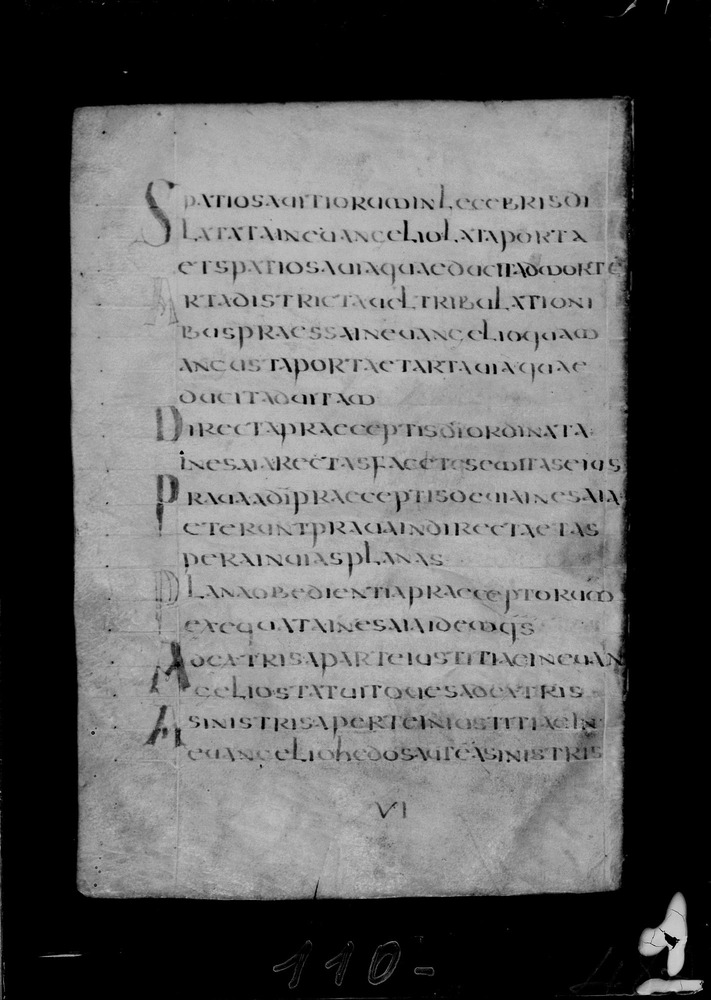 SPATIOSAUITIORUMINLECEBRISDI
LATATAINEUANGELIOLATAPORTA
ETSPATIOSAUIAQUAEDUCITADMORTE
ARTADISTRICTAUELTRIBULATIONI
BUSPRAESSAINEUANGELIOQUAM
ANGUSTAPORTAETARTAUIAQUAE
DUCITADUITAM
DIRECTAPRAECEPTISDIORDINATA
INESAIARECTASFACETESEMITASEIUS
PRAUAADIPRAECEPTISDEUIAINESAIA
ETERUNTPRAUAINDIRECTAETAS
PERAINUIASPLANAS
PLANAOBEDIENTIAPRAECEPTORUM
EXEQUATAINESAIAIDEMQS
ADEXTRISAPARTEIUSTITIAEINEUAN
GELIOSTATUITOUESADEXTRIS
ASINISTRISAPERTEINIUSTITIAEIN
EUANGELIOHEDOSAUTEASINISTRIS
VI
110-